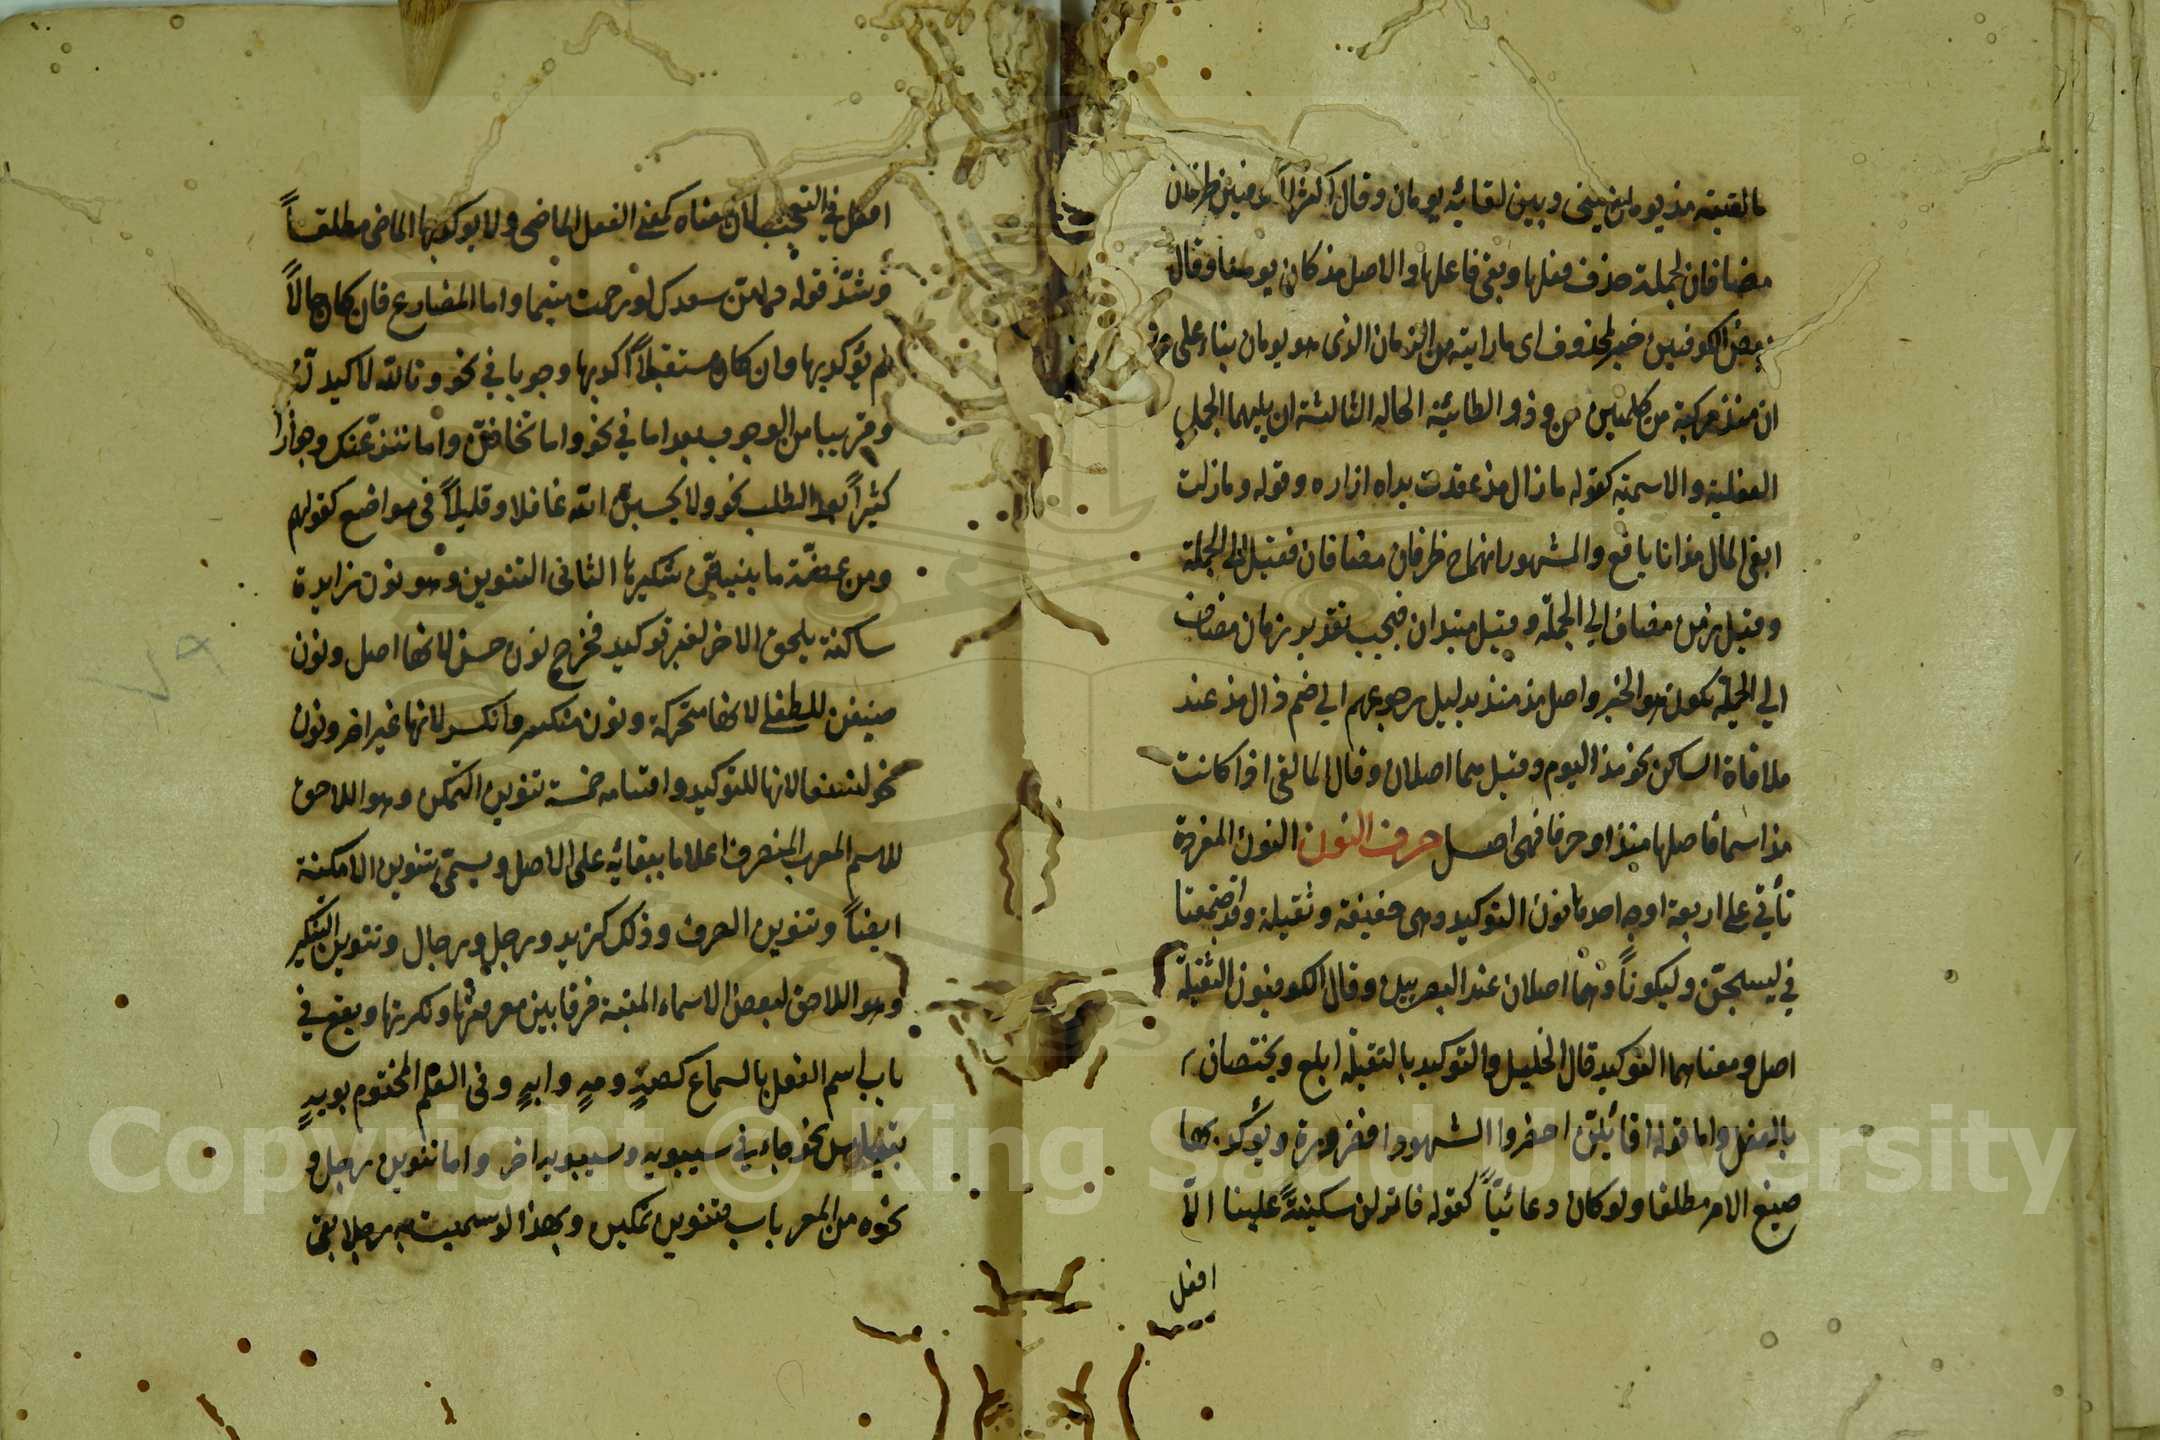 ما لقيته مذ يومان بيني وبين لقائه يومان وقال اكثر الكوفيين ظرفان
مضافان لجملة حذف فعلها وبقي فاعلها والاصل مذ كان يومان وقال
بعض الكوفيين خبر لمحذوف اى ما رايته من الزمان الذى هو يومان بناء على
ان منذ مركبة من كلمتين من وذو الطائية الحالة الثالثة ان يليهما الجمل
الفعلية والاسمية كقوله ما زال مذ عقدت يداه ازاره وقوله وما زلت
ابغى المال مذ انا يافع والمشهور انهما ح ظرفان مضافان فقيل الى الجملة
وقيل زمن مضاف الي الجملة وقيل مبتدان فيجب تقدير زمان مضاف
الي الجملة يكون هو الخبر واصل مذ منذ بدليل رجوعهم الي ضم ذال مذ عند
ملاقاة الساكن نحو مذ اليوم وقيل هما اصلان وقال المالقى اذا كانت
مذ اسما فاصلها منذ او حرفا فهى اصل حرف النون النون المفردة
تأتي على اربعة اوجه احدها نون التوكيد وهى خفيفة وثقيلة وقد اجتمعتا
في ليسجنن وليكوناً وهما اصلان عند البصريين وقال الكوفيون الثقيلة
اصل ومعناهما التوكيد قال الخليل والتوكيد بالثقيلة ابلغ ويختصان
بالفعل واما قوله اقائلن احضروا الشهود افضرورة ويؤكد بهما
صيغ الامر مطلقا ولو كان دعائيّاً كقوله فانزلن سكينةً علينا الّا
افعل
افعل في التعجب لان معناه كمعنى الفعل الماضى ولا يوكد بهما الماضى مطلقاً
وشذّ قوله دامن سعدك لو رحمت متيما واما المضارع فان كان حالاً
لم يؤكد بهما وان كان مستقبلاً اكد بها وجوبا في نحو وتالله لاكيدنّ
وقريبا من الوجوب بعد اما في نحو واما تخافنّ واما ينزغنك وجوازا
كثيراً بعد الطلب نحو ولا تحسبنّ الله غافلا وقليلاً فى مواضع كقولهم
ومن عضّة ما ينبتنّ شكيرها الثانى التنوين وهو نون زايدة
ساكنة يلحق الاخر لغير توكيد فخرج نون حسن لانها اصل ونون
ضيفن للطفلي لانها متحركة ونون منكسر وانكسر لانها غير اخر ونون
نحو لنسفعا لانها للتوكيد واقسامه خمسة تنوين التمكن وهو اللاحق
للاسم المعرب المنصرف اعلاما ببقائه على الاصل ويسمّى تنوين الامكنية
ايضاً وتنوين الصرف وذلك كزيد ورجل ورجال وتنوين التنكير
وهو اللاحق لبعض الاسماء المبنية فرقا بين معرفتها ونكرتها ويقع في
باب اسم الفعل بالسماع كصهٍ ومهٍ وايهٍ وفى العلم المختوم بويهٍ
بقياس نحو جاءني سيبويه وسيبويه اخر واما تنوين رجل و
نحوه من المعربات فتنوين تمكين وبهذا لو سميت به رجلا بقى